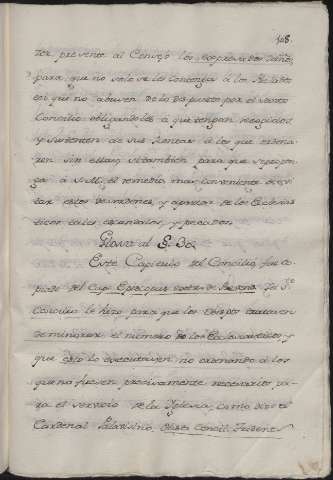 108.
tor, presente al Consejo los expresados daños
para que no solo se les contenga à los Prelados
en que no abusen de lo dispuesto por el santo
Concilio obligandoles à que tengan recogidos
y sustenten de sus Rentas à los que ordena-
ren sin ellas, si tambien para que se propon-
ga à S. M. el remedio mas conveniente de evi-
tar estos desordenes, y apartar de los Eclesias-
ticos tales escandalos, y pecados.
Glosa al §. 30.
Este Capitulo del Concilio fue co-
piado del Cap. Episcopus
Concilio le hizo para que los Obispos tratasen
de minorar el numero de los Eclesiasticos, y
que esto lo executasen no ordenando à los
que no fuesen precisamente necesarios pa-
ra el servicio de la Iglesia, como dice el
Cardenal Palavicino